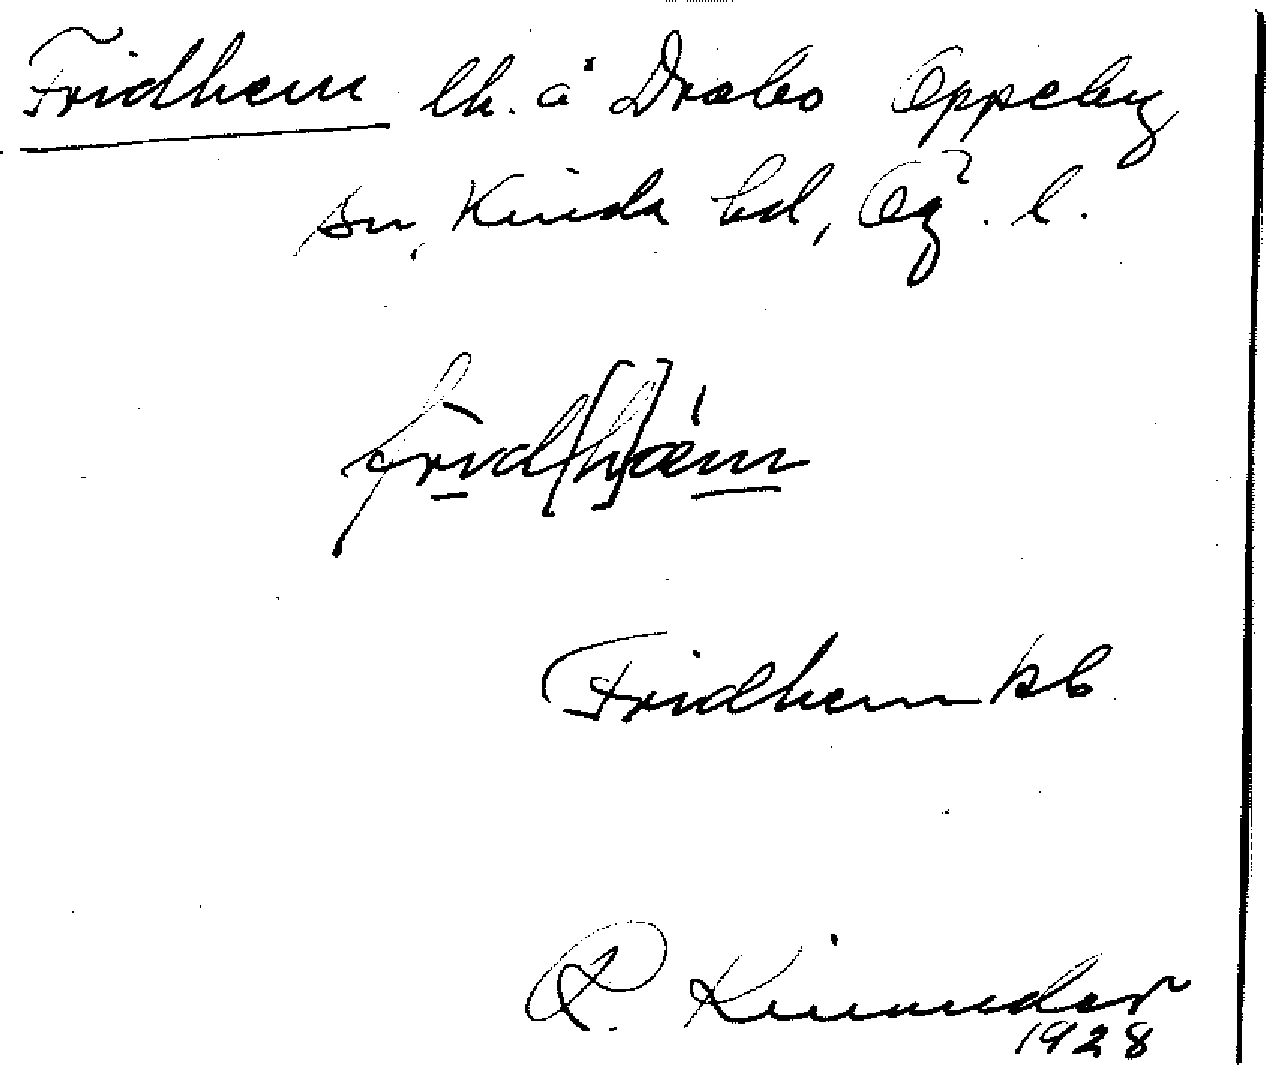 Fridhem lh. å Drabo Oppeby
sn, Kinda hd, Ög. l.
frìd[h]ǽm
Fridhem kb
R. Kinnander
1928